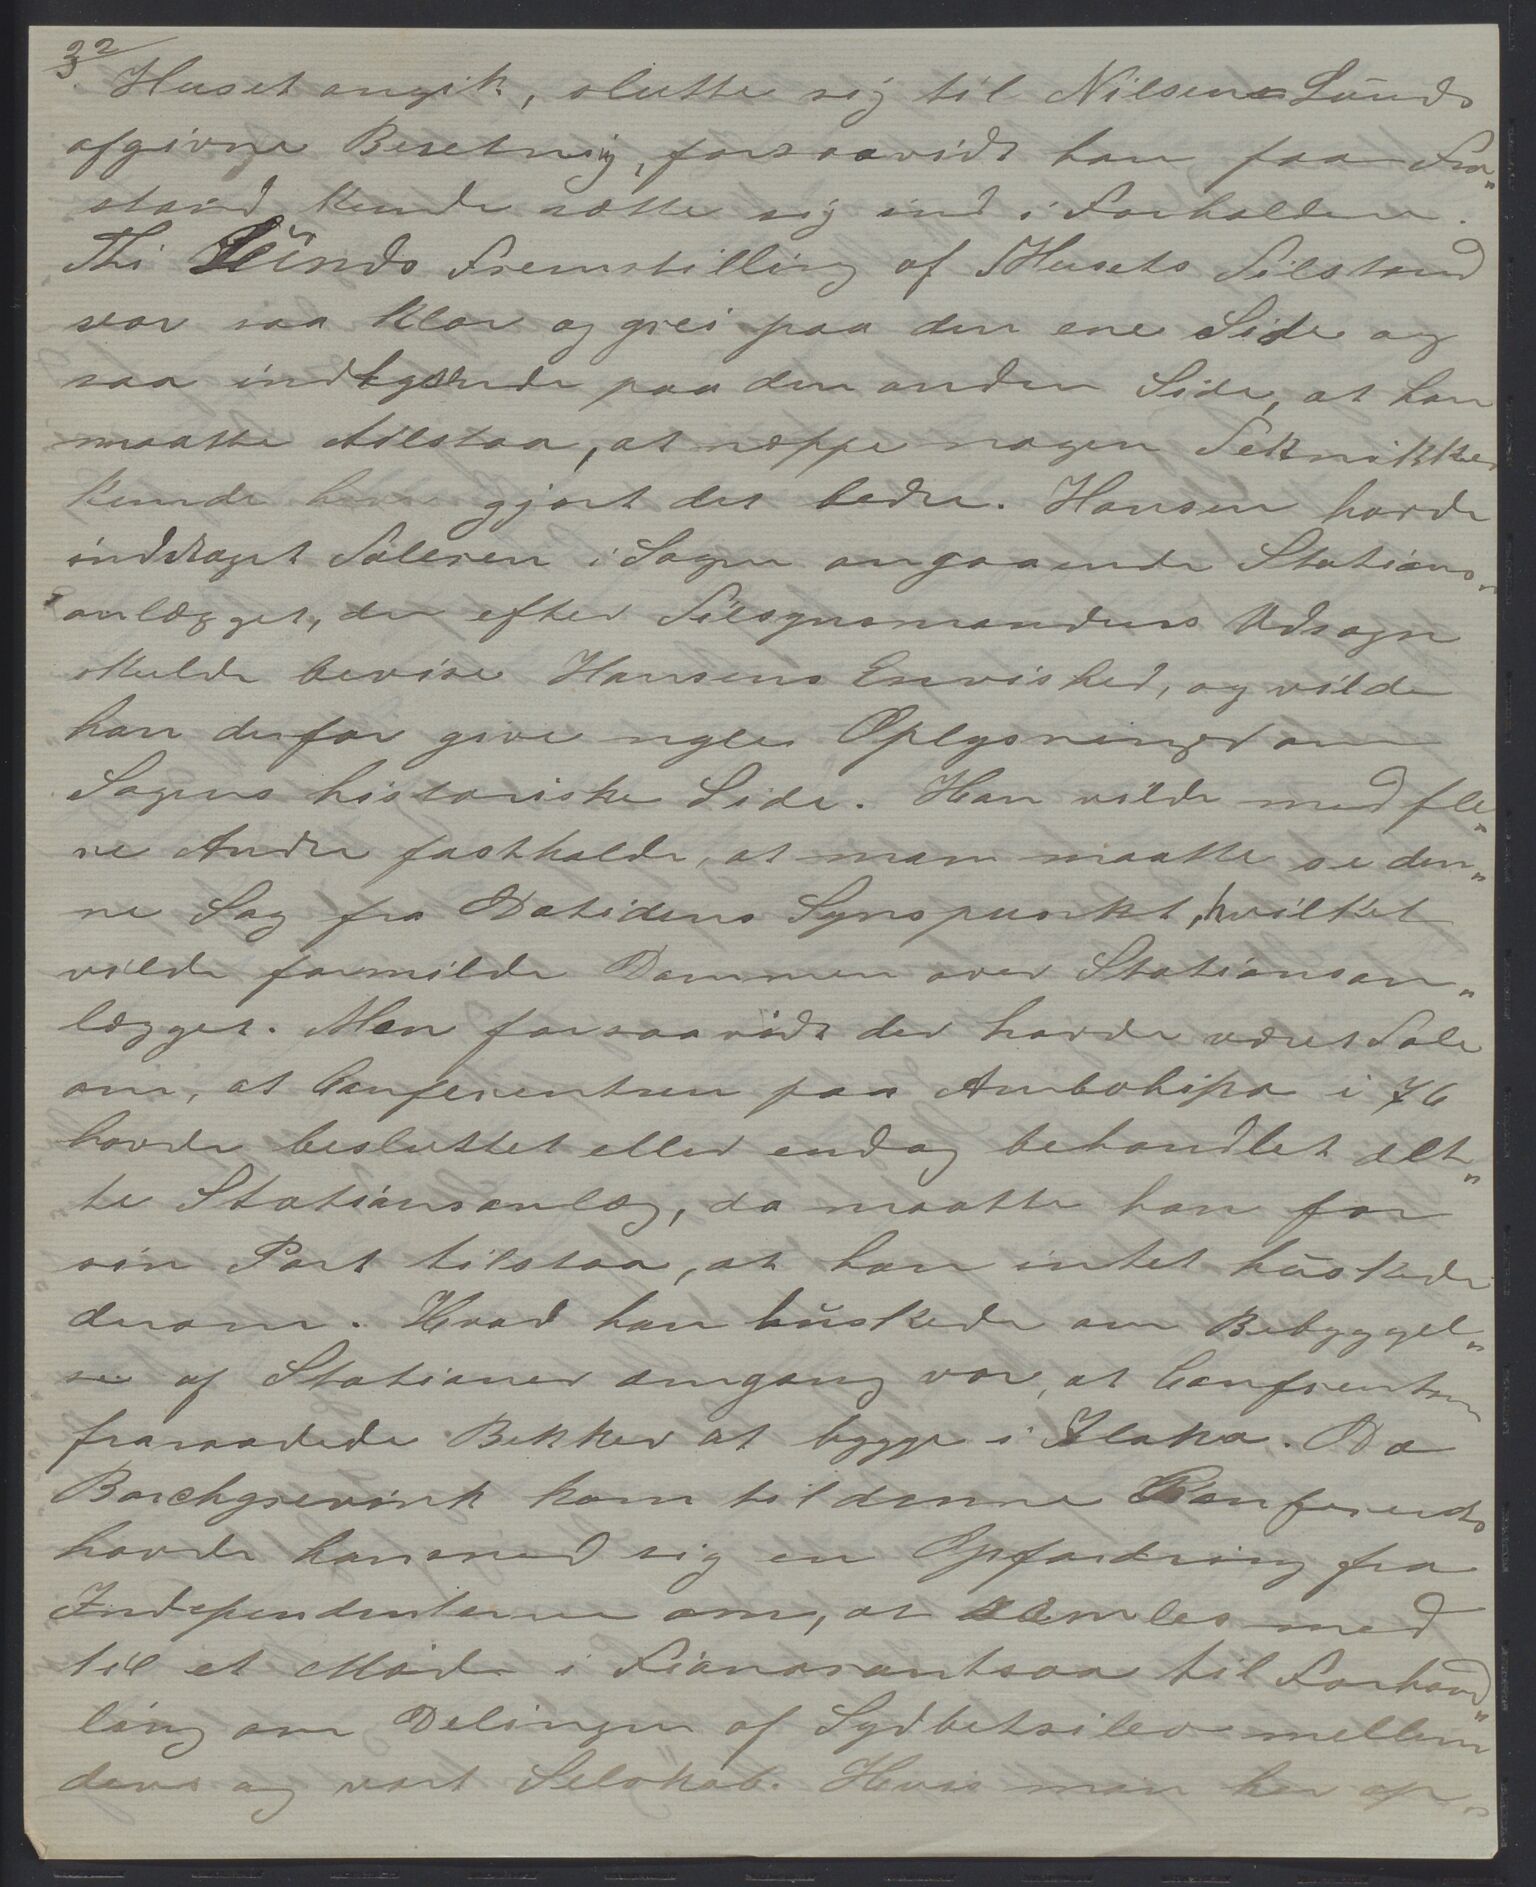 32
Huset angik, slutte sig til Nilsens Lunds
afgivne Beretning, forsaavidt han paa For„
stand kunde sætte sig ind i Forholdene.
Thi Lunds Fremstilling af Husets Tilstand
var saa klar og grei paa den ene Side og
saa indtgaaende paa den anden Side, at han
maatte tilstaa, at næppe nogen Teknikker
kunde have gjort det bedre. Hansen havde
inddraget Taleren i Sagen angaaende Stations„
anlægget, der efter Tilsynsmandens Udsagn
skulde bevise Hansens Ensvished, og vilde
han derfor give nogle Oplysninger om
Sagens historiske Side. Han vilde med fle„
re Andre fastholde, at man maatte se den„
ne Sag fra Datidens Synspunkt, hvilket
vilde formilde Dommen over Stationsan„
lægget. Men forsaavidt der havde været Tale
om, at Conferentsen paa Ambohipo i 76
havde besluttet eller endog behandlet det„
te Stationsanlæg, da maatte han for
sin Part tilstaa, at han intet huskede
derom. Hvad han huskede om Bebyggel„
se af Stationer dengang var, at Conferentsen
fraraadede Bekker at bygge i Ilaka. Da
Borchgrevink kom til denne Conferents
havde han med sig en Opfordring fra
Independenterne om, at samles med
til et Møde i Fianarantsoa til Forhand„
ling om Delingen af Sydbetsileo mellem
dens og vort Selskab. Hvis man her op„